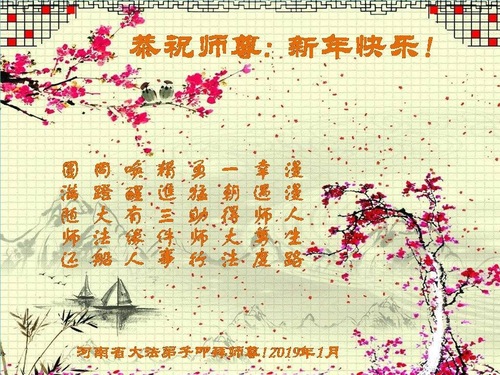 恭祝师尊: 新年快乐!
漫漫人生路
幸遇师尊度
一朝得大法
勇猛助师行
精進三件事
喚醒有缘人
同大法船
圓满随师还
河南省大法弟子叩拜师尊!2019年1月